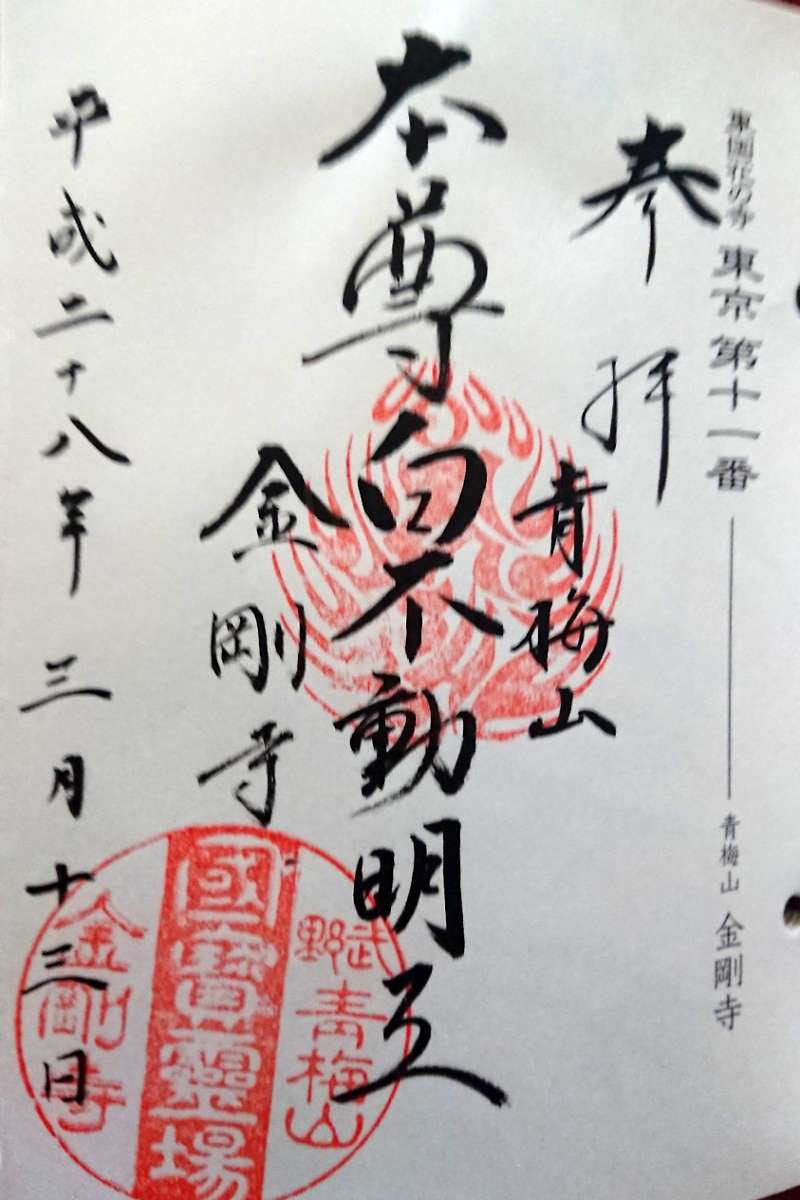 東国花の寺 東京第十一番 青梅山 金剛寺
奉拝
青梅山
本尊白不動明王
金剛寺
平成二十八年 三月十三日
武野
青梅山
國寶霊場
金剛寺